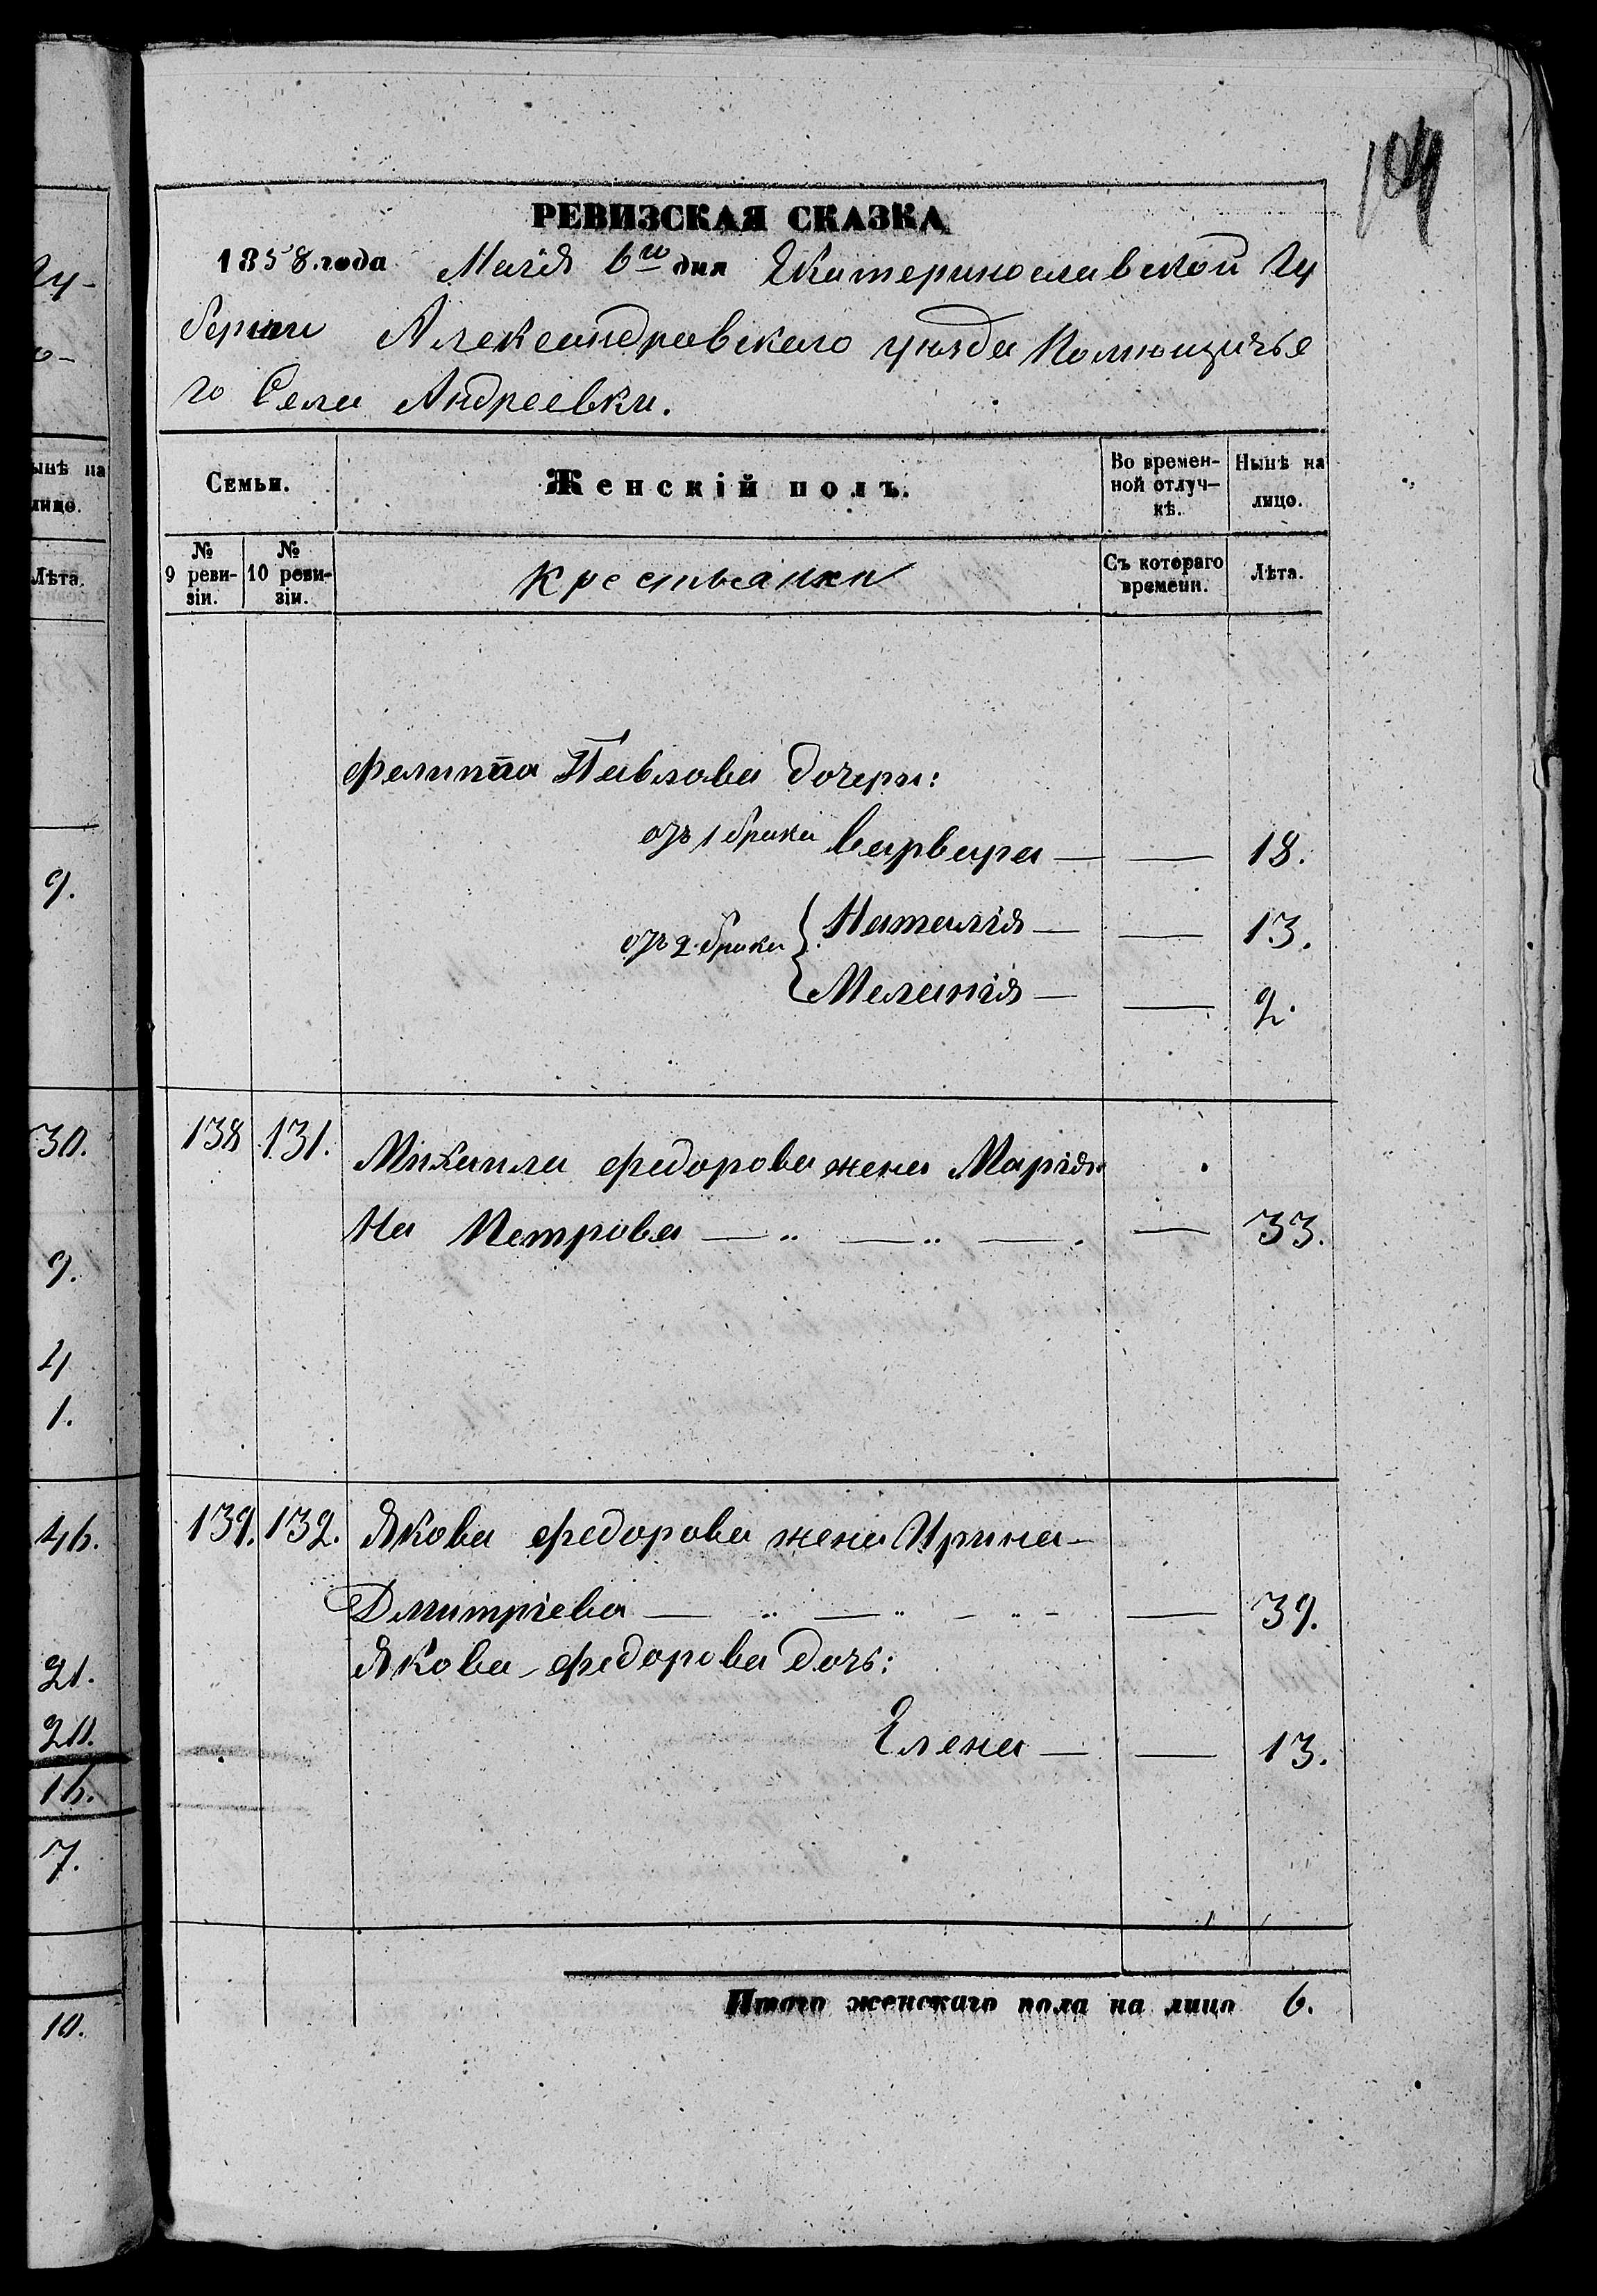 104
РЕВИЗСКАЯ СКАЗКА
1858 года Маія 6го дня Екатеринославской Гу
берніи Александровскаго уѣзда Помѣщичье
го Села Андреевки.
Семьи. Женскій полъ. Во времен- Ныне на
ной отлуч- лицо.
кѣ.
№ № Крестьянки Съ котораго Лѣта.
9 реви- 10 реви- времени.
зіи. зіи.
Филиппа Павлова дочери:
отъ 1 брака Варвара — — 18.
отъ 2 брака { Наталія — — 13.
Меланія — — 2.
138 131. Михаила Федорова жена Марія
на Петрова — „ — „ — . — 33.
139. 132. Якова Федорова жена Ирина —
Дмитріева — „ — „ — „ — — 39.
Якова Федорова дочь:
Елена — — 13.
Итого женскаго пола на лицо 6.
Гу-
о-
ынѣ на
лицо.
Лѣта.
9.
30.
9.
4
1.
46.
21.
20.
16.
7.
10.